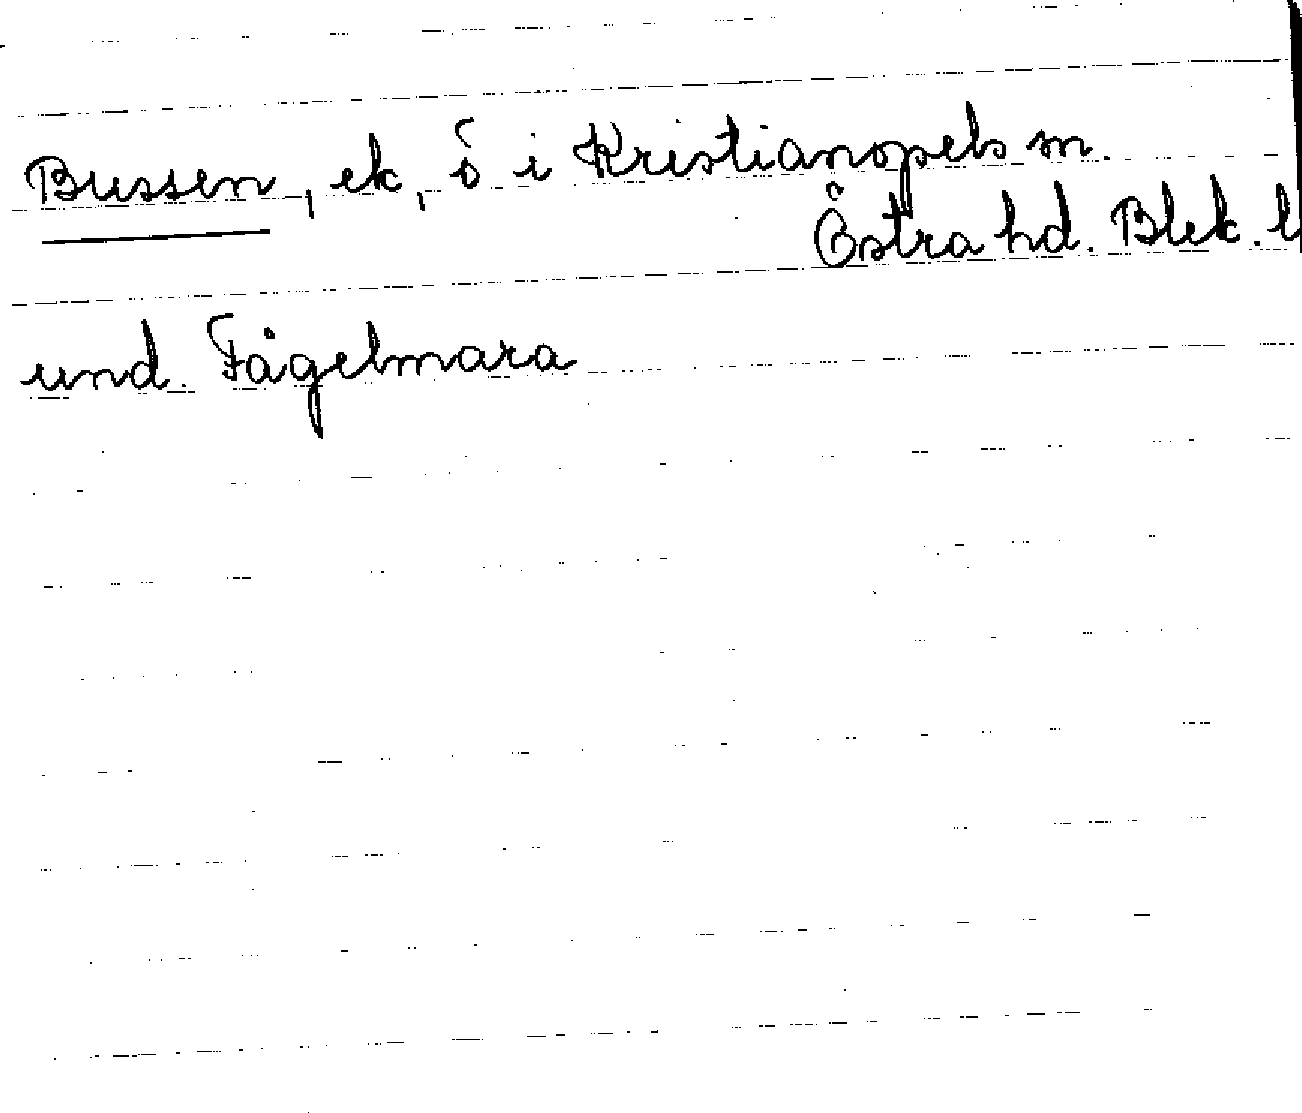 Bussen, ek, ö i Kristianopels sn.
Östra hd. Blek. l
und. Fågelmara